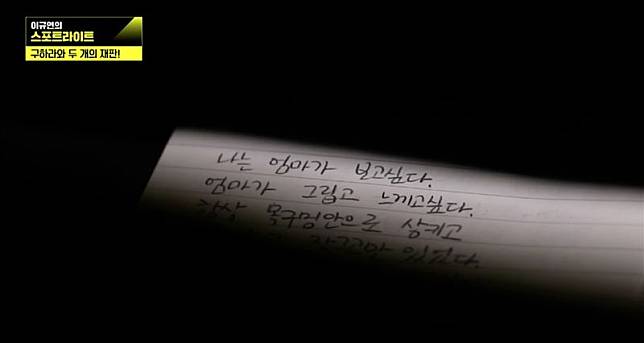 이규연의
스포트라이트
구하라와 두 개의 재판!
나는 엄마가 보고싶다.
엄마가 그립고 느끼고싶다.
항상 목구멍안으로 삼키고
있었다.